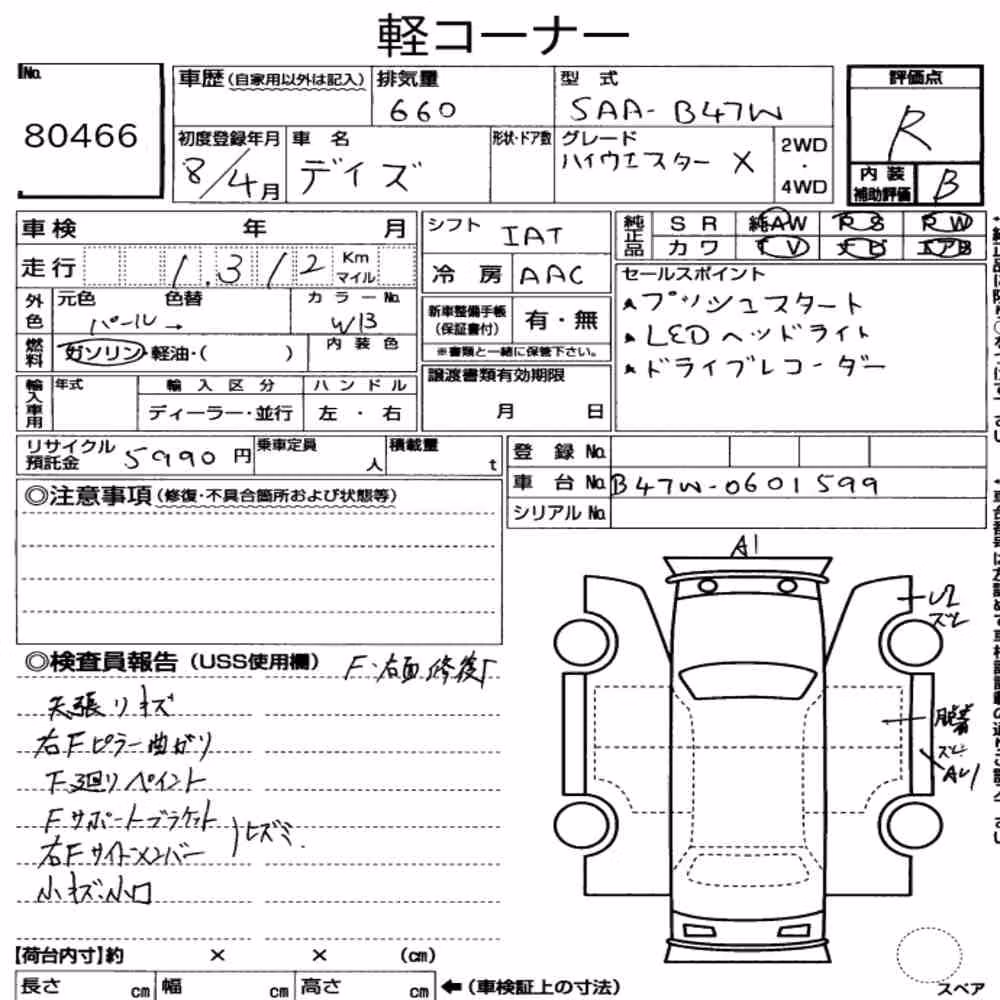 軽コーナー
No.
80466
車歴(自家用以外は記入)
排気量
660
型式
SAA-B47W
評価点
R
初度登録年月
8/4月
車名
デイズ
形状・ドア数
グレード
ハイウエスター X
2WD
・
4WD
内装
補助評価
B
車検 年 月
走行 1.312 Km マイル
外色
元色 色替
パール→
カラーNo.
W13
燃料
ガソリン・軽油・( )
内装色
輸入車用
年式
輸入区分
ハンドル
ディーラー・並行
左・右
シフト
IAT
冷房
AAC
新車整備手帳
(保証書付)
有・無
※書類と一緒に保管下さい。
譲渡書類有効期限
月 日
純正品
SR 純AW PS PW
カワ TV ナビ エアB
セールスポイント
★プッシュスタート
★LEDヘッドライト
★ドライブレコーダー
リサイクル
預託金
5990円
乗車定員
人
積載量
t
登録No.
車台No. B47W-0601599
シリアルNo.
◎注意事項(修復・不具合箇所および状態等)
◎検査員報告(USS使用欄)
F・右面修復
右Fピラー曲がり
F廻りペイント
Fサポートブラケット
右Fサイドメンバー
)ヒズミ
小キズ、小凹
A1
U2
ズレ
脱着
ズレ
AU1
【荷台内寸】約 × × (cm)
長さ cm 幅 cm 高さ cm
←(車検証上の寸法)
スペア